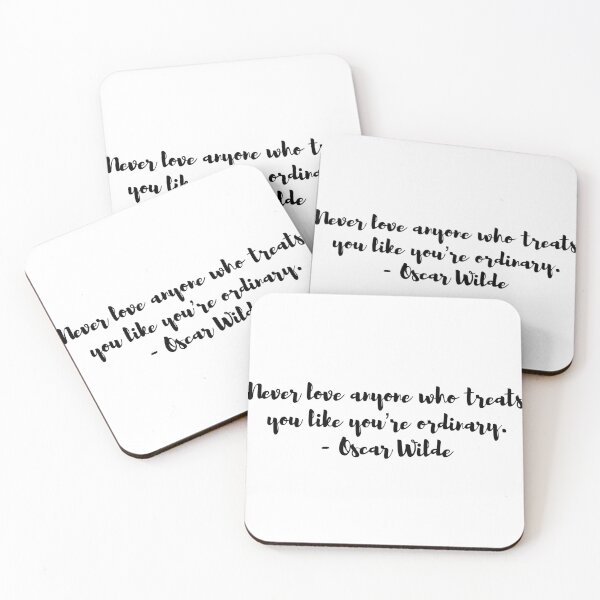 Never love anyone who
you
Never love anyone who treats
you like you're ordinary.
- Oscar Wilde
Never love anyone who treats
you like you're ordinary.
- Oscar Wild
Never love anyone who treats
you like you're ordinary.
- Oscar Wilde